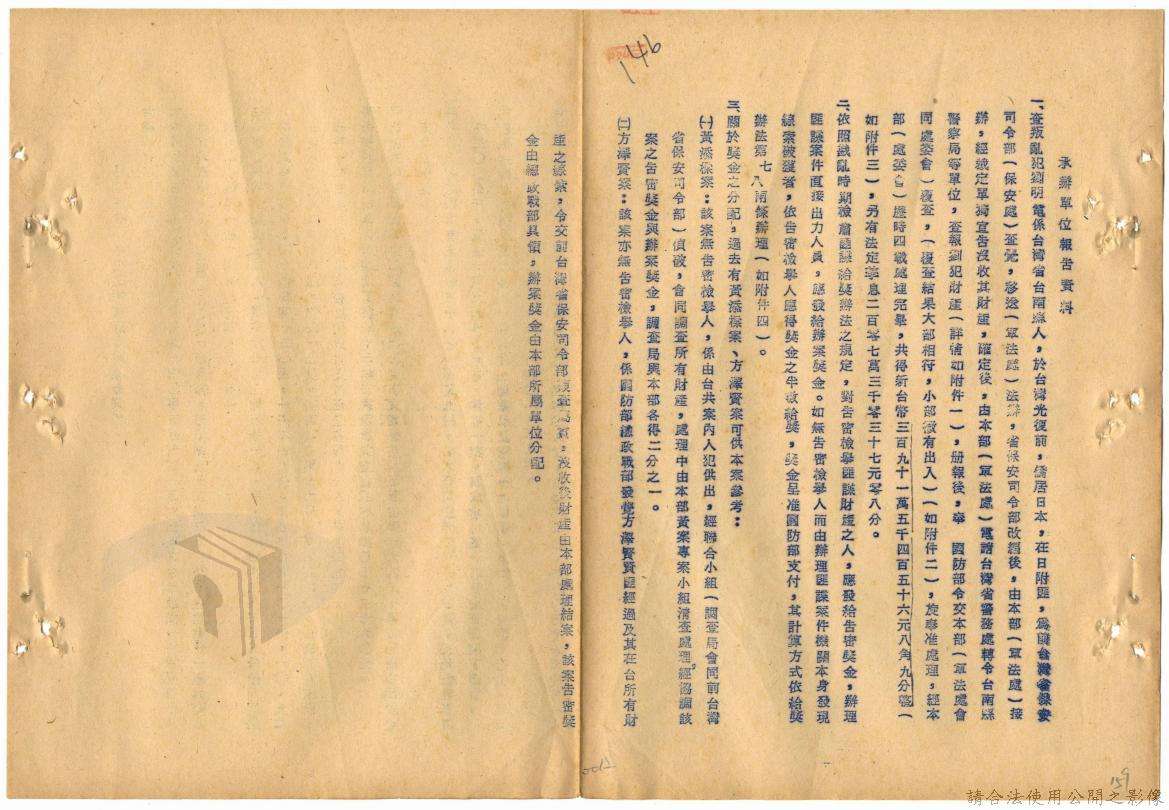 146
承辦單位報告資料
一、查叛亂犯劉明電係台灣省台南縣人，於台灣光復前，僑居日本，在日附匪，為前台灣省保安
司令部（保安處）查覺，移送（軍法處）法辦，省保安司令部改組後，由本部（軍法處）接
辦，經裁定單獨宣告沒收其財產，確定後，由本部（軍法處）電請台灣省警務處轉令台南縣
警察局等單位，查報劉犯財產（詳情如附件一），册報後，奉　國防部令交本部（軍法處會
同處委會）復查，（復查結果大部相符，小部微有出入）（如附件二），旋奉准處理，經本
部（處委會）歷時四載處理完畢，共得新台幣三百九十一萬五千四百五十六元八角九分整（
如附件三），另有法定孳息二百零七萬三千零三十七元零八分。
二、依照戡亂時期檢肅匪諜給獎辦法之規定，對告密檢舉匪諜財產之人，應發給告密獎金，辦理
匪諜案件直接出力人員，應發給辦案獎金。如無告密檢舉人而由辦理匪諜案件機關本身發現
線索破獲者，依告密檢舉人應得獎金之半數給獎，獎金呈准國防部支付，其計算方式依給獎
辦法第七、八兩條辦理（如附件四）。
三、關於獎金之分配，過去有黃添樑案、方澤賢案可供本案參考：
㈠黃添樑案：該案無告密檢舉人，係由台共案內人犯供出，經聯合小組（調查局會同前台灣
省保安司令部）偵破，會同調查所有財產，處理中由本部黃案專案小組清查處理，經協調該
案之告密獎金與辦案獎金，調查局與本部各得二分之一。
㈡方澤賢案：該案亦無告密檢舉人，係國防部總政戰部發覺方澤賢資匪經過及其在台所有財
產之線索，令交前台灣省保安司令部復查屬實，沒收後財產由本部處理結案，該案告密獎
金由總政戰部具領，辦案獎金由本部所屬單位分配。
159
請合法使用公開之影像